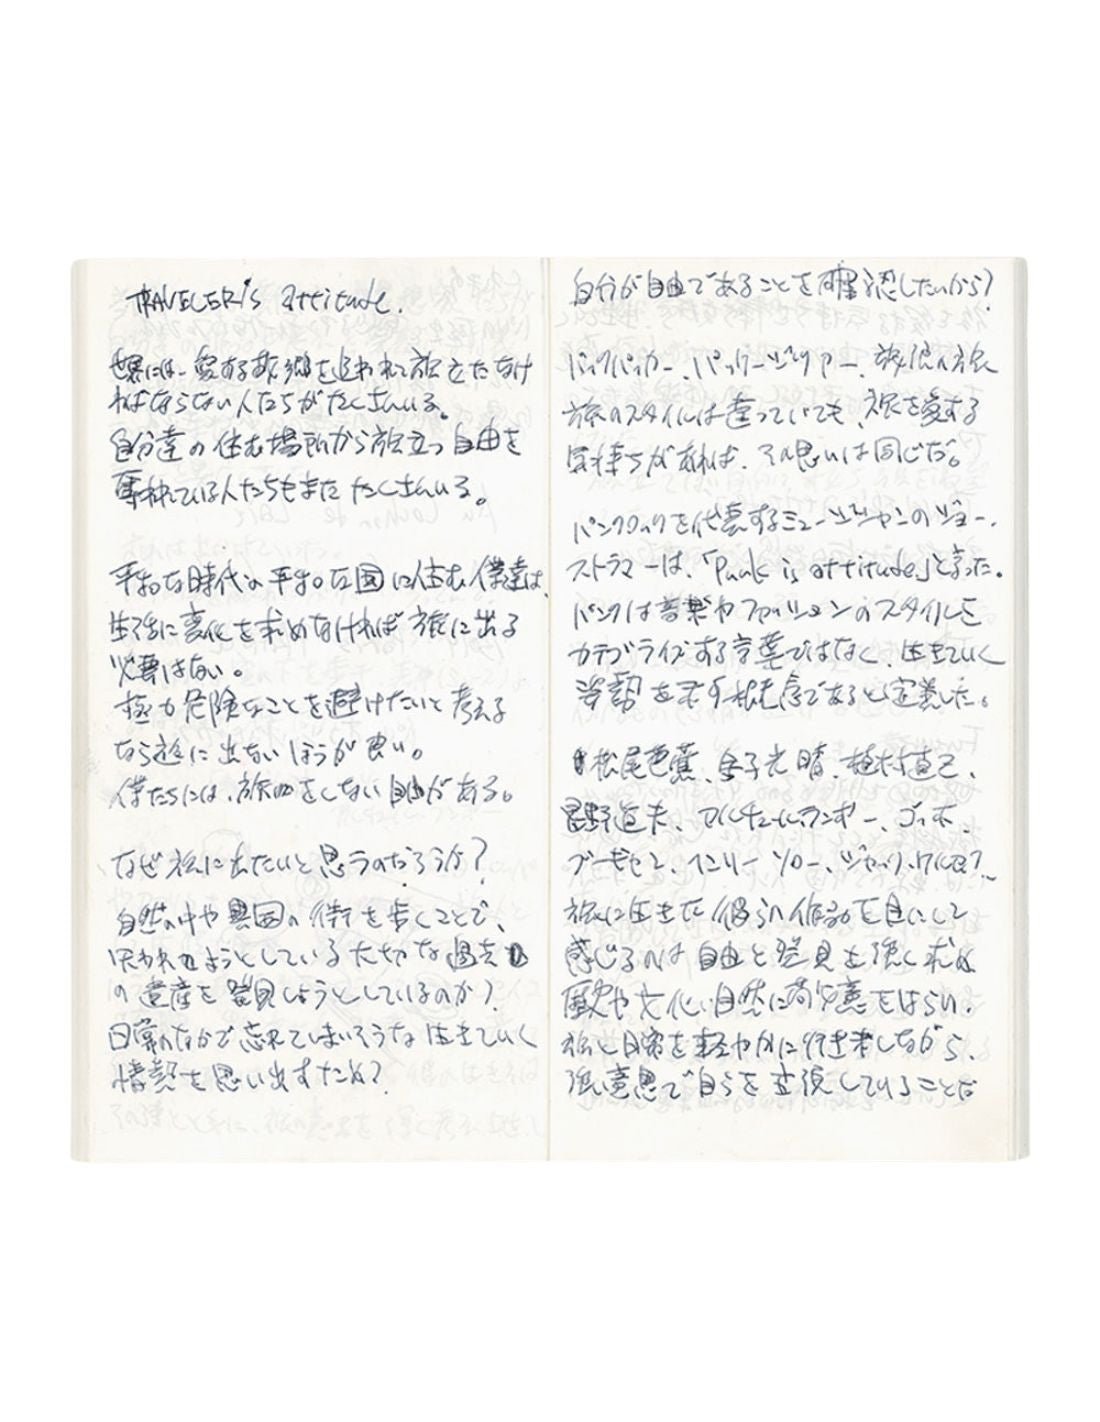 TRAVELER'S attitude.
世界には、愛する故郷を追われて旅立たなけ
ればならない人たちがたくさんいる。
自分達の住む場所から旅立つ自由を
奪われている人たちもまたたくさんいる。
平和な時代の平和な国に住む僕達は、
生活に変化を求めなければ旅に出る
必要はない。
極力危険なことを避けたいと考える
なら旅に出ないほうが良い。
僕たちには、旅をしない自由がある。
なぜ旅に出たいと思うのだろうか?
自然の中や異国の街を歩くことで、
失われようとしている大切な過去
の遺産を発見しようとしているのか?
日常のなかで忘れてしまいそうな生きていく
情熱を思い出すため?
自分が自由であることを確認したいから?
バックパッカー、パッケージツアー、放浪の旅
旅のスタイルは違っていても、旅を愛する
気持ちがあれば、その思いは同じだ。
パンクロックを代表するミュージシャンのジョー・
ストラマーは、「Punk is attitude」と言った。
パンクは音楽やファッションのスタイルを
カテゴライズする言葉ではなく、生きていく
姿勢を示す概念であると定義した。
松尾芭蕉、金子光晴、植村直己、
星野道夫、アルチュール・ランボー、ゴッホ、
ブーギャン、ヘンリー ソロー、ジャック・ケルアック..
旅に生きた彼らの作品を目にして
感じるのは自由と発見を強く求め
歴史や文化、自然に敬意をはらい、
旅と日常を軽やかに行き来しながら、
強い意思で自らを主張していることだ